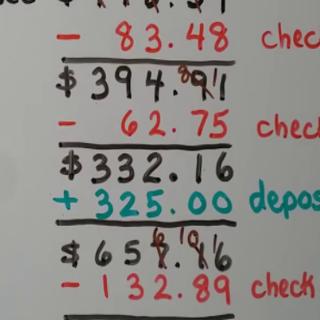 - 83.48 chec
$394.91
- 62.75 chec
$332.16
+ 325.00 depos
$657.16
- 132.89 check